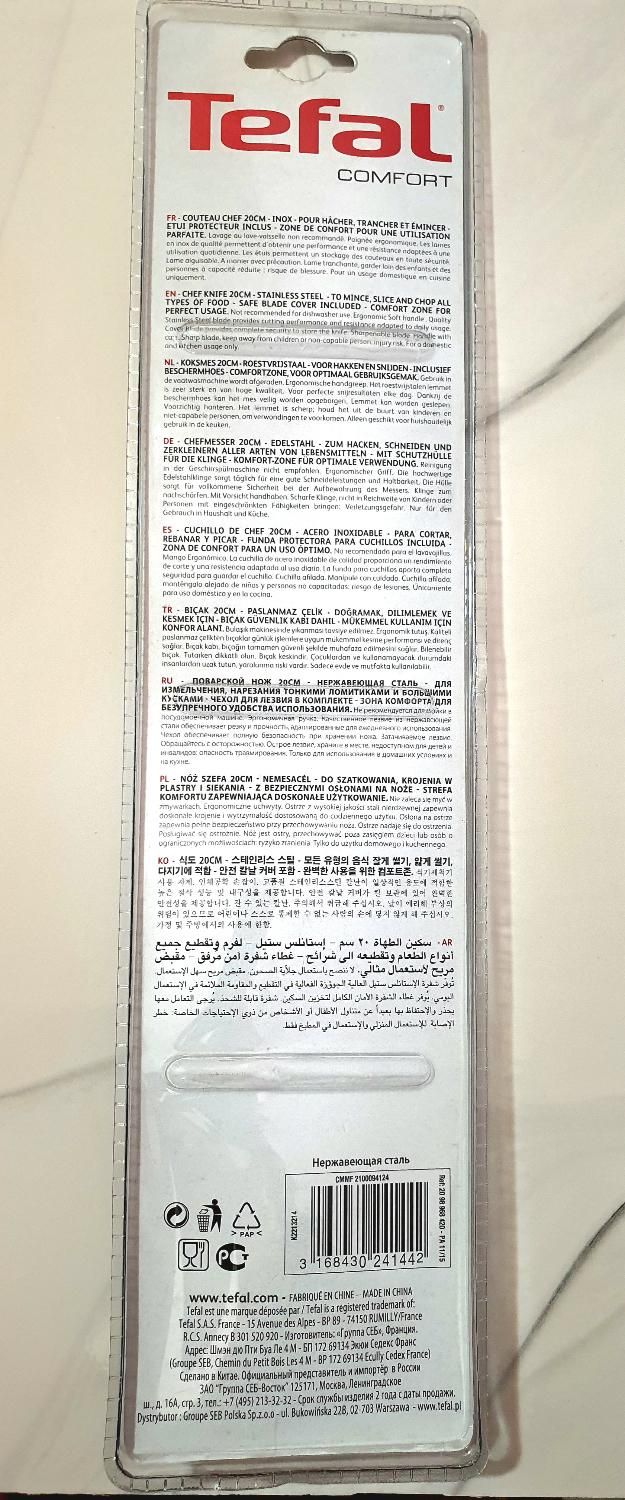 Tefal®
COMFORT
FR - COUTEAU CHEF 20CM - INOX - POUR HÂCHER, TRANCHER ET ÉMINCER -
ETUI PROTECTEUR INCLUS - ZONE DE CONFORT POUR UNE UTILISATION
PARFAITE. Lavage au lave-vaisselle non recommandé. Poignée ergonomique. Les lames
en inox de qualité permettent d'obtenir une performance et une résistance adaptées à une
utilisation quotidienne. Les étuis permettent un stockage des couteaux en toute sécurité.
Lame aiguisable. A manier avec précaution. Lame tranchante, garder loin des enfants et des
personnes à capacité réduite : risque de blessure. Pour un usage domestique en cuisine
uniquement.
EN - CHEF KNIFE 20CM - STAINLESS STEEL - TO MINCE, SLICE AND CHOP ALL
TYPES OF FOOD - SAFE BLADE COVER INCLUDED - COMFORT ZONE FOR
PERFECT USAGE. Not recommended for dishwasher use. Ergonomic Soft handle. Quality
Stainless Steel blade provides cutting performance and resistance adapted to daily usage.
Cover Blade provides complete security to store the knife. Sharpenable blade. Handle with
care. Sharp blade, keep away from children or non-capable person, injury risk. For a domestic
and kitchen usage only.
NL - KOKSMES 20CM - ROESTVRIJSTAAL - VOOR HAKKEN EN SNIJDEN - INCLUSIEF
BESCHERMHOES - COMFORTZONE, VOOR OPTIMAAL GEBRUIKSGEMAK. Gebruik in
de vaatwasmachine wordt afgeraden. Ergonomische handgreep. Het roestvrijstalen lemmet
is zeer sterk en van hoge kwaliteit. Voor perfecte snijresultaten elke dag. Dankzij de
beschermhoes kan het mes veilig worden opgeborgen. Lemmet kan worden geslepen.
Voorzichtig hanteren. Het lemmet is scherp; houd het uit de buurt van kinderen en
niet-capabele personen, om verwondingen te voorkomen. Alleen geschikt voor huishoudelijk
gebruik in de keuken.
DE - CHEFMESSER 20CM - EDELSTAHL - ZUM HACKEN, SCHNEIDEN UND
ZERKLEINERN ALLER ARTEN VON LEBENSMITTELN - MIT SCHUTZHÜLLE
FÜR DIE KLINGE - KOMFORT-ZONE FÜR OPTIMALE VERWENDUNG. Reinigung
in der Geschirrspülmaschine nicht empfohlen. Ergonomischer Griff. Die hochwertige
Edelstahlklinge sorgt täglich für eine gute Schneideleistungen und Haltbarkeit. Die Hülle
sorgt für vollkommene Sicherheit bei der Aufbewahrung des Messers. Klinge zum
nachschärfen. Mit Vorsicht handhaben. Scharfe Klinge, nicht in Reichweite von Kindern oder
Personen mit eingeschränkten Fähigkeiten bringen: Verletzungsgefahr. Nur für den
Gebrauch in Haushalt und Küche.
ES - CUCHILLO DE CHEF 20CM - ACERO INOXIDABLE - PARA CORTAR,
REBANAR Y PICAR - FUNDA PROTECTORA PARA CUCHILLOS INCLUIDA -
ZONA DE CONFORT PARA UN USO ÓPTIMO. No recomendado para el lavavajillas.
Mango Ergonómico. La cuchilla de acero inoxidable de calidad proporciona un rendimiento
de corte y una resistencia adaptada al uso diario. La funda para cuchillos aporta completa
seguridad para guardar el cuchillo. Cuchilla afilada. Manipule con cuidado. Cuchilla afilada,
manténgala alejada de niños y personas no capacitadas: riesgo de lesiones. Únicamente
para uso doméstico y en la cocina.
TR - BIÇAK 20CM - PASLANMAZ ÇELİK - DOĞRAMAK, DİLİMLEMEK VE
KESMEK İÇİN - BIÇAK GÜVENLİK KABI DAHIL - MÜKEMMEL KULLANIM İÇİN
KONFOR ALANI. Bulaşık makinesinde yıkanması tavsiye edilmez. Ergonomik tutuş. Kaliteli
paslanmaz çelikten bıçaklar günlük işlemlere uygun mükemmel kesme performansı ve direnç
sağlar. Bıçak kabı, bıçağın tamamen güvenli şekilde muhafaza edilmesini sağlar. Bilenebilir
bıçak. Tutarken dikkatli olun. Bıçak keskindir. Çocuklardan ve kullanamayacak durumdaki
insanlardan uzak tutun, yaralanma riski vardır. Sadece evde ve mutfakta kullanılabilir.
RU - ПОВАРСКОЙ НОЖ 20CM - НЕРЖАВЕЮЩАЯ СТАЛЬ - ДЛЯ
ИЗМЕЛЬЧЕНИЯ, НАРЕЗАНИЯ ТОНКИМИ ЛОМТИКАМИ И БОЛЬШИМИ
КУСКАМИ - ЧЕХОЛ ДЛЯ ЛЕЗВИЯ В КОМПЛЕКТЕ - ЗОНА КОМФОРТА ДЛЯ
БЕЗУПРЕЧНОГО УДОБСТВА ИСПОЛЬЗОВАНИЯ. Не рекомендуется для мойки в
посудомоечной машине. Эргономичная ручка. Качественное лезвие из нержавеющей
стали обеспечивает резку и прочность, адаптированные для ежедневного использования.
Чехол обеспечивает полную безопасность при хранении ножа. Затачиваемое лезвие.
Обращайтесь с осторожностью. Острое лезвие, храните в месте, недоступном для детей и
инвалидов: опасность травмирования. Только для использования в домашних условиях и
на кухне.
PL - NÓŻ SZEFA 20CM - NEMESACÉL - DO SZATKOWANIA, KROJENIA W
PLASTRY I SIEKANIA - Z BEZPIECZNYMI OSŁONAMI NA NOŻE - STREFA
KOMFORTU ZAPEWNIAJĄCA DOSKONAŁE UŻYTKOWANIE. Nie zaleca się myć w
zmywarkach. Ergonomiczne uchwyty. Ostrze z wysokiej jakości stali nierdzewnej zapewnia
doskonałe krojenie i wytrzymałość dostosowaną do codziennego użytku. Osłona na ostrze
zapewnia pełne bezpieczeństwo przy przechowywaniu noża. Ostrze nadaje się do ostrzenia.
Posługiwać się ostrożnie. Nóż jest ostry, przechowywać poza zasięgiem dzieci lub osób o
ograniczonych możliwościach: ryzyko zranienia. Tylko do użytku domowego i kuchennego.
KO - 식도 20CM - 스테인리스 스틸 - 모든 유형의 음식 잘게 썰기, 얇게 썰기,
다지기에 적합 - 안전 칼날 커버 포함 - 완벽한 사용을 위한 컴포트존. 식기세척기
사용 자제. 인체공학 손잡이. 고품질 스테인리스스틸 칼날이 일상적인 용도에 적합한
높은 절삭 성능 및 내구성을 제공합니다. 안전 칼날 커버가 칼 보관에 있어 완벽한
안전성을 제공합니다. 갈 수 있는 칼날. 주의해서 취급해 주십시오. 날이 예리해 부상의
위험이 있으므로 어린이나 스스로 통제할 수 없는 사람의 손에 닿지 않게 해 주십시오.
가정 및 주방에서의 사용에 한함.
AR - سكين الطهاة ٢٠ سم - إستانلس ستيل - لفرم وتقطيع جميع
أنواع الطعام وتقطيعه الى شرائح - غطاء شفرة آمن مُرفق - مقبض
مريح لاستعمال مثالي. لا ننصح باستعمال جلاّية الصحون. مقبض مريح سهل الإستعمال.
تُوفر شفرة الإستانلس ستيل العالية الجوؤزة الفعالية في التقطيع والمقاومة الملائمة في الإستعمال
اليومي. يُوفر غطاء الشفرة الأمان الكامل لتخزين السكين. شفرة قابلة للشحذ. يُرجى التعامل معها
بحذر والإحتفاظ بها بعيداً عن متناول الأطفال أو الأشخاص من ذوي الإحتياجات الخاصة: خطر
الإصابة. للإستعمال المنزلي والإستعمال في المطبخ فقط.
Нержавеющая сталь
CMMF 2100094124
K2213214
Ref: 20 98 968 420 - PA 11/15
3 168430 241442
PAP
www.tefal.com - FABRIQUÉ EN CHINE - MADE IN CHINA
Tefal est une marque déposée par / Tefal is a registered trademark of:
Tefal S.A.S. France - 15 Avenue des Alpes - BP 89 - 74150 RUMILLY/France
R.C.S. Annecy B 301 520 920 - Изготовитель: «Группа СЕБ», Франция.
Адрес: Шмэн дю Пти Буа Ле 4 М - БП 172 69134 Экюи Седекс Франс
(Groupe SEB, Chemin du Petit Bois Les 4 M - BP 172 69134 Ecully Cedex France)
Сделано в Китае. Официальный представитель и импортёр в России
ЗАО "Группа СЕБ-Восток" 125171, Москва, Ленинградское
ш., д. 16А, стр. 3, тел.: +7 (495) 213-32-32 - Срок службы изделия 2 года с даты продажи.
Dystrybutor : Groupe SEB Polska Sp.z.o.o - ul. Bukowińska 22B, 02-703 Warszawa - www.tefal.pl